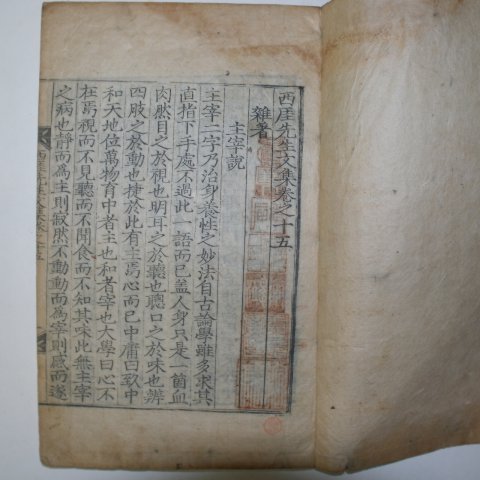 西厓先生文集卷之十五
雜著
主宰說
主宰二字乃治身養性之妙法自古論學雖多求其
直指下手處不過此一語而已盖人身只是一箇血
肉然目之於視也明耳之於聽也聰口之於味也辨
四肢之於動也捷於此有主焉心而已中庸曰致中
和天地位萬物育中者主也和者宰也大學曰心不
在焉視而不見聽而不聞食而不知其味此無主宰
之病也靜而爲主則寂然不動動而爲宰則感而遂